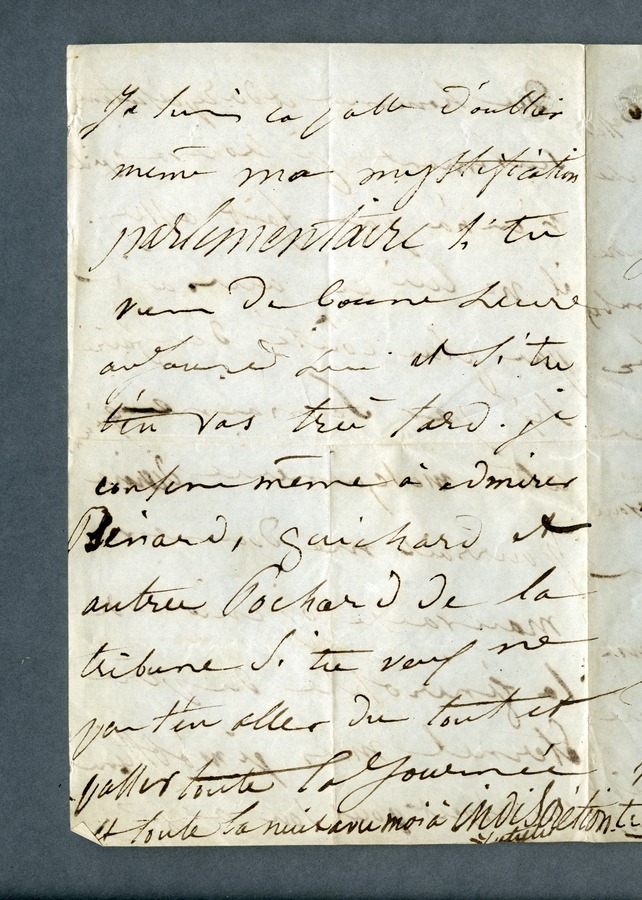 Je suis capable d'oublier
même ma mystification
parlementaire si tu
viens de bonne heure
aujourd'hui et si tu
t'en vas très tard. je
consens même à admirer
Bénard, Guichard et
autres Pochard de la
tribune si tu veux ne
pas t'en aller du tout et
passer toute la Journée
et toute la nuit avec moi à indiscrétion